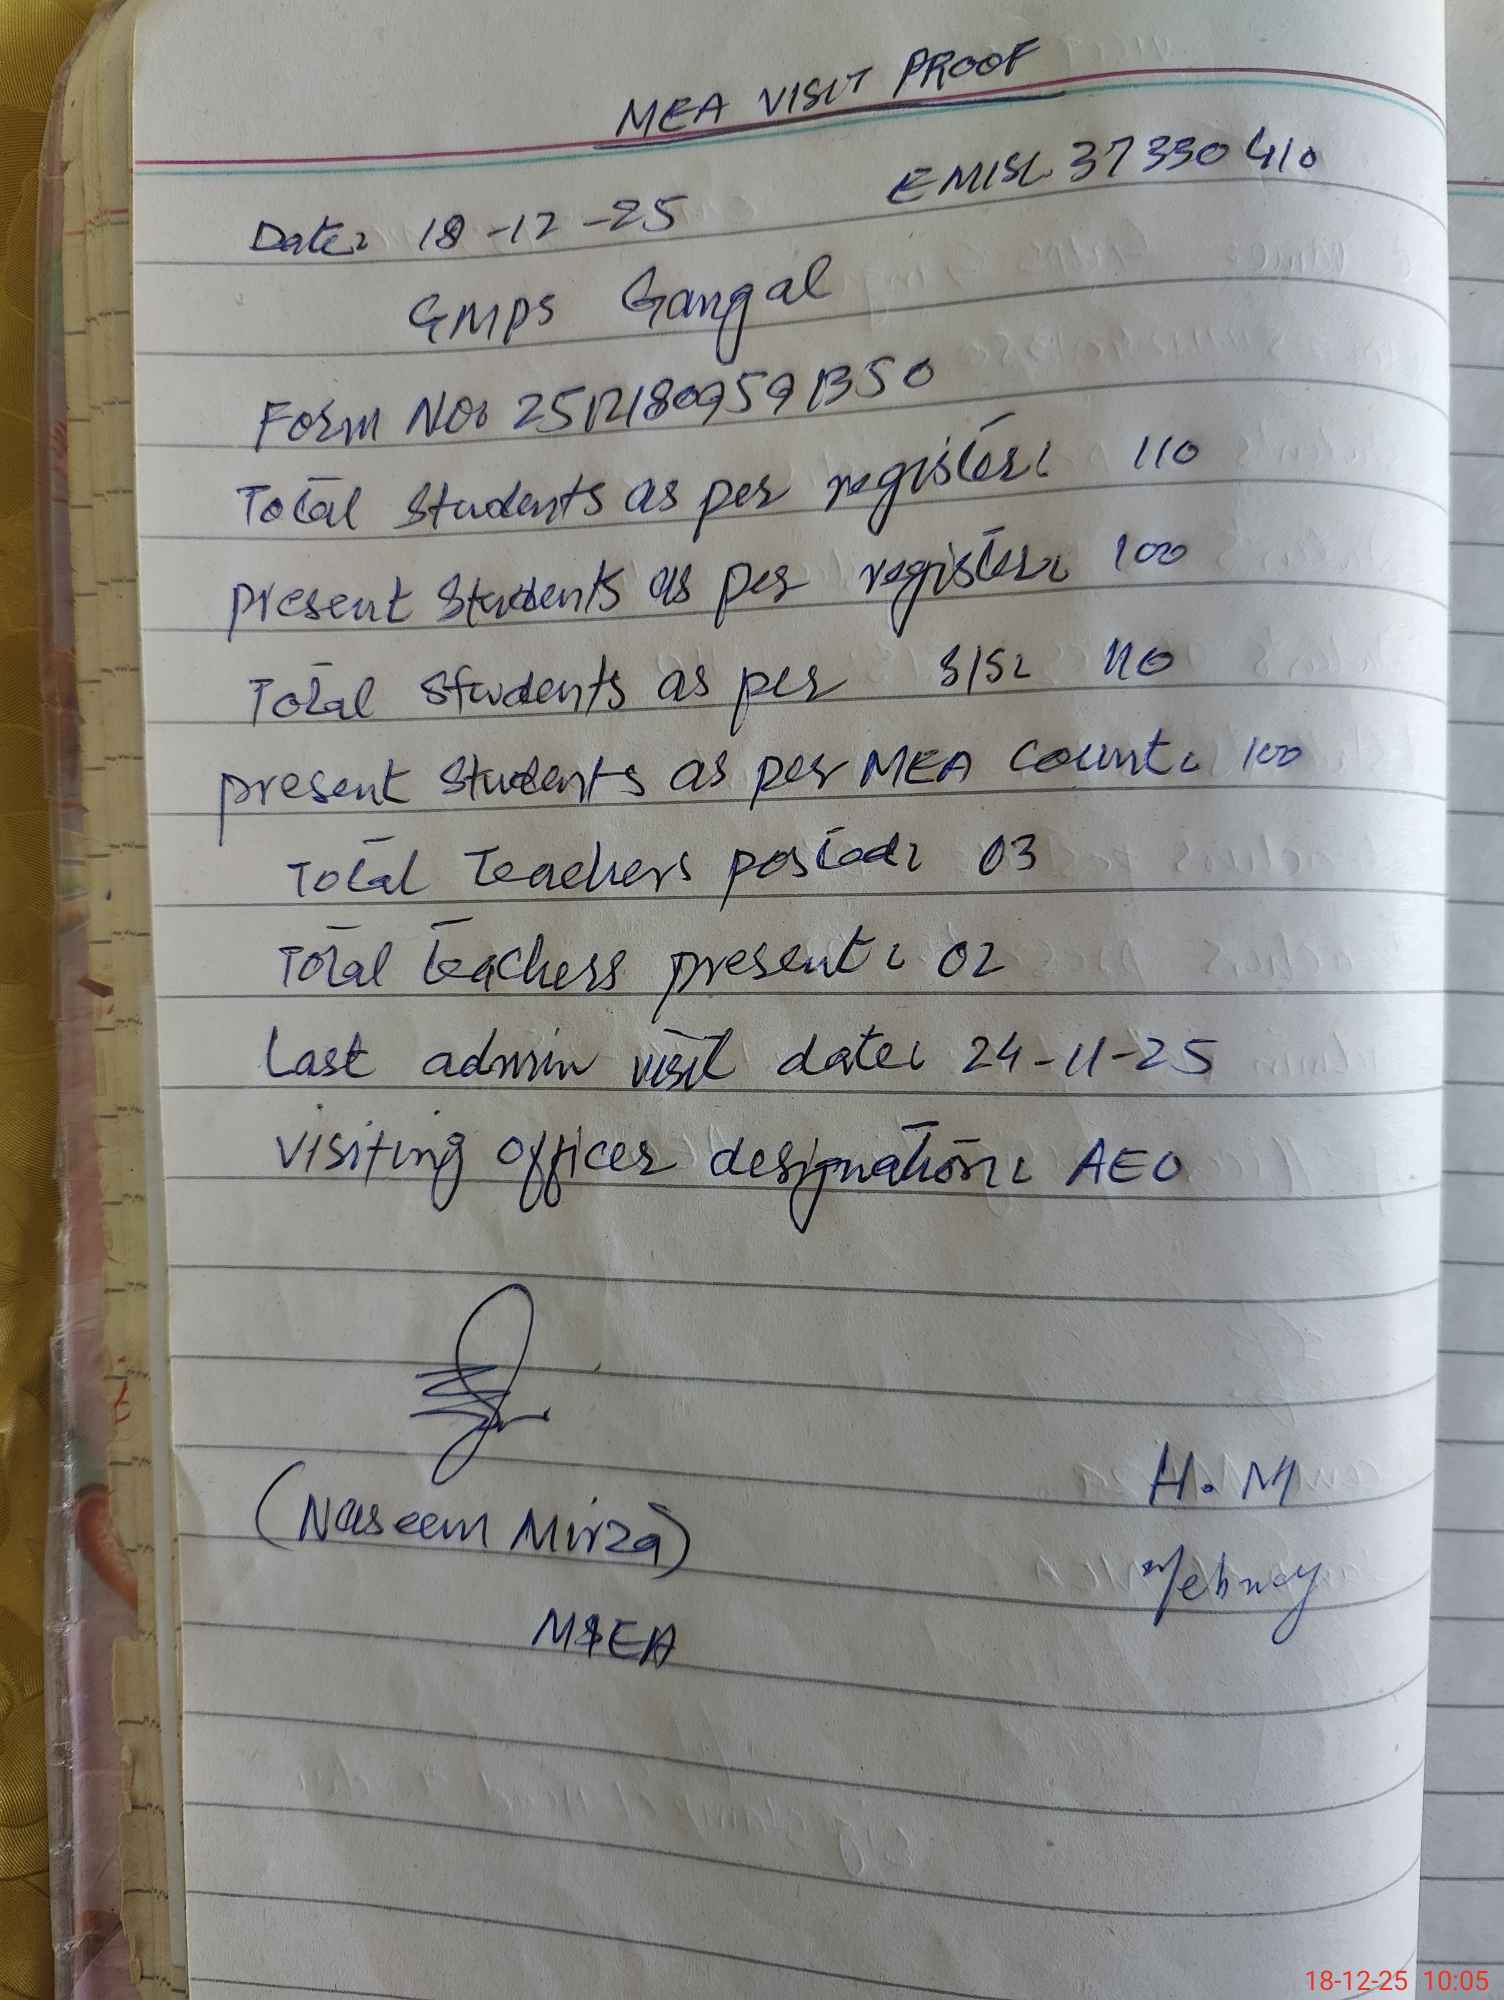 MEA VISIT PROOF
EMIS: 37330410
Date: 18-12-25
GMPS Gangal
Form No: 25121809591350
Total students as per register: 110
present students as per register: 100
Total students as per SIS: 110
present students as per MEA count: 100
Total Teachers posted: 03
Total teachers present: 02
Last admin visit date: 24-11-25
visiting officer designation: AEO
H.M
(Naseem Mirza)
MEA
18-12-25 10:05